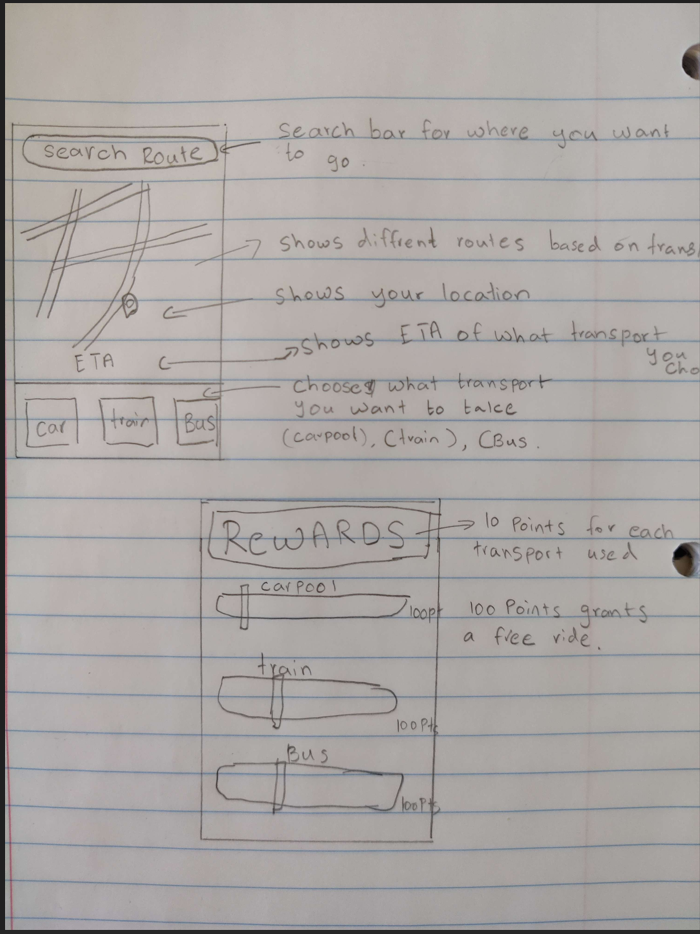 Search Route
Search bar for where you want
to go.
Shows diffrent routes based on trans
Shows your location
Shows ETA of what transport
you
cho
ETA
Choose what transport
you want to take
(carpool), (train), (Bus.
Car
train
Bus
REWARDS
10 Points for each
transport used
carpool
100pt
100 Points grants
a free ride.
train
100Pts
Bus
100Pts